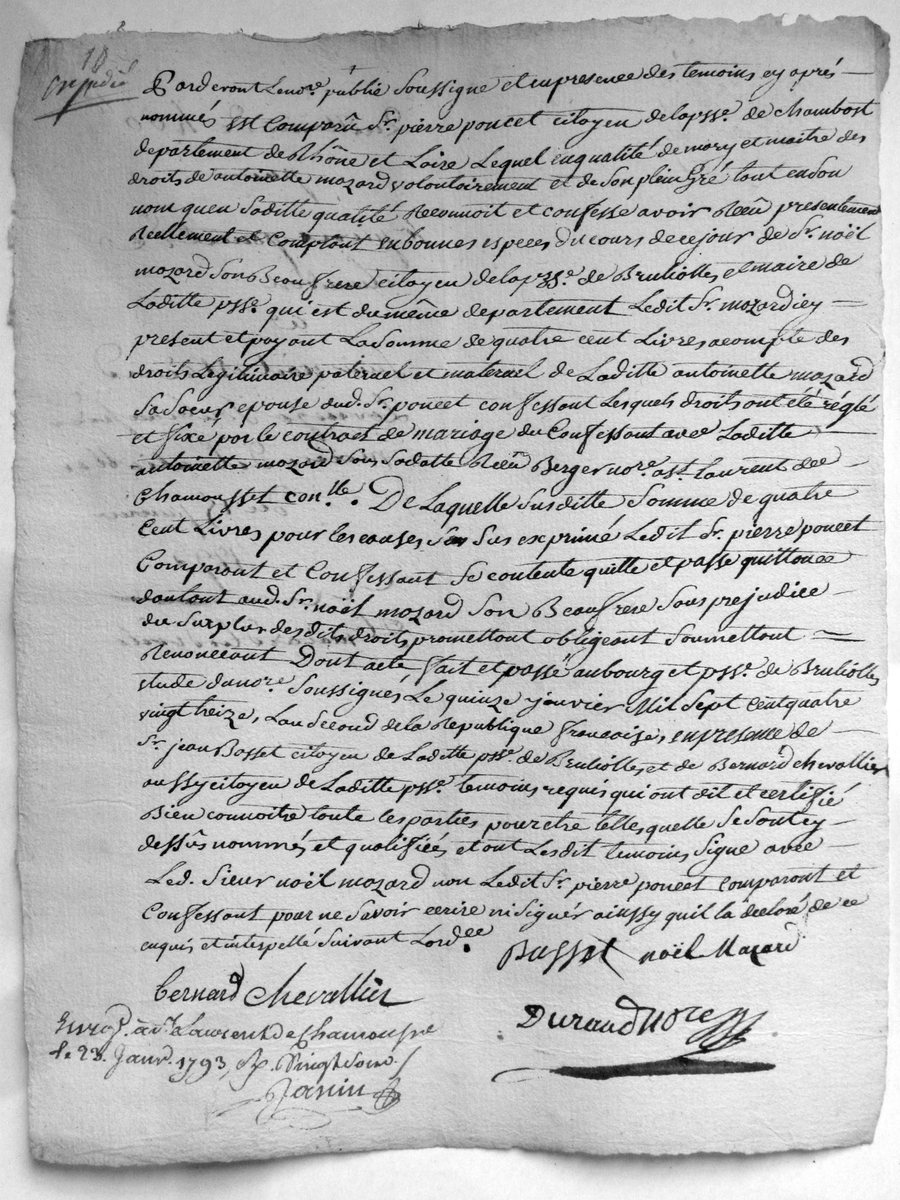 18
Expédié
Pardevant Le no.re public Soussigné et en presence des temoins cy aprés
nommés est Comparû S.r pierre poncet citoyen de la pss.e de chambost
departement de Rhône et Loire Lequel en qualité de mary et maitre des
droits de antoinette mazard volontairement et de son plein Gré tout en son
nom qu'en Saditte qualité Reconnoit et confesse avoir Reçû presentement
Reellement et Comptant en bonnes especes du cours de ce jour de S.r noël
mazard Son Beaufrere citoyen de la pss.e de Brullolles et maire de
Laditte pss.e qui est du même departement Ledit S.r mazard icy
present et payant La Somme de quatre cent Livres acompte des
droits Legitimaire paternel et maternel de Laditte antoinette mazard
Sa Soeur epouse aud. S.r poncet confessant Lesquels droits ont été réglé
et fixé par le contract de mariage du Confessant avec Laditte
antoinette mazard Sous Sadatte Reçû Berger no.re a st. Laurent de
Chamousset con.lle. De Laquelle Susditte Somme de quatre
Cent Livres pour les causes Sus exprimé Ledit S.r pierre poncet
Comparant et Confessant Se contente quitte et passe quittance
dautant aud. S.r noël mazard Son Beaufrere Sans prejudice
du Surplus des dits droits, promettant obligeant Soumettant
Renonceant Dont acte fait et passé au bourg et pss.e de Brullolles
etude du no.re Soussignés Le quinze janvier Mil Sept Cent quatre
vingt treize, L'an Second de la Republique francaise, en presence de
S.r jean Basset citoyen de Laditte pss.e de Brullolles et de Bernard chevallier
aussy citoyen de Laditte pss.e temoins requis qui ont dit et certiffié
Bien connoitre toute les parties pour etre telles quelle Se Sont cy
dessûs nommés et qualiffiées et ont Lesdit temoins Signe avec
Led. Sieur noël mazard non Ledit S.r pierre poncet comparant et
Confessant pour ne Savoir ecrire ni Signér ainssy quil la declaré de ce
enquis et interpellé Suivant Lord.ce
Basset noël Mazard
bernard chevallier
Durand no.re
Enreg. à S.t Laurent de Chamousse
le 23. Janv. 1793, R. Vingt Sous
Janin